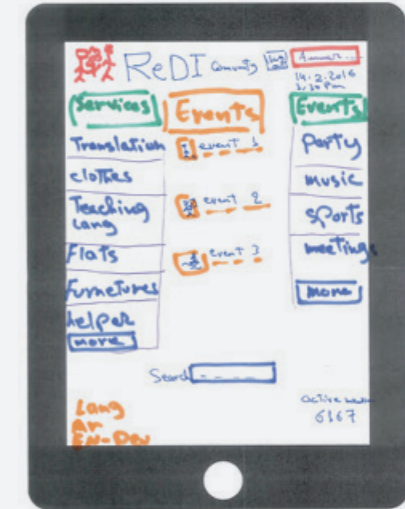 ReDI Community
14.2.2016
3:30 Pm
Services
Translation
clothes
Teaching
Lang
Flats
Furnetures
helper
more
Events
event 1
event 2
event 3
Events
Party
music
sports
meetings
more
Search
Lang
Ar
EN-Deu
active
6167